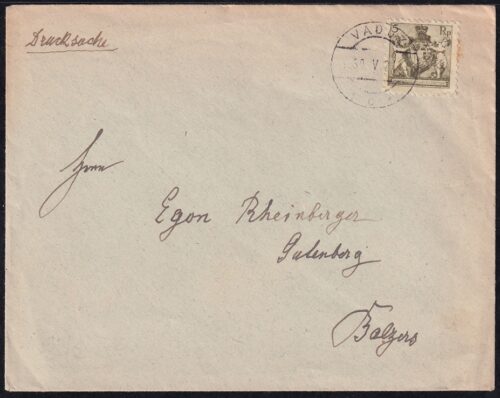 Drucksache
VADUZ
Rp
30 V 2
Herrn
Egon Rheinberger
Gutenberg
Balzers